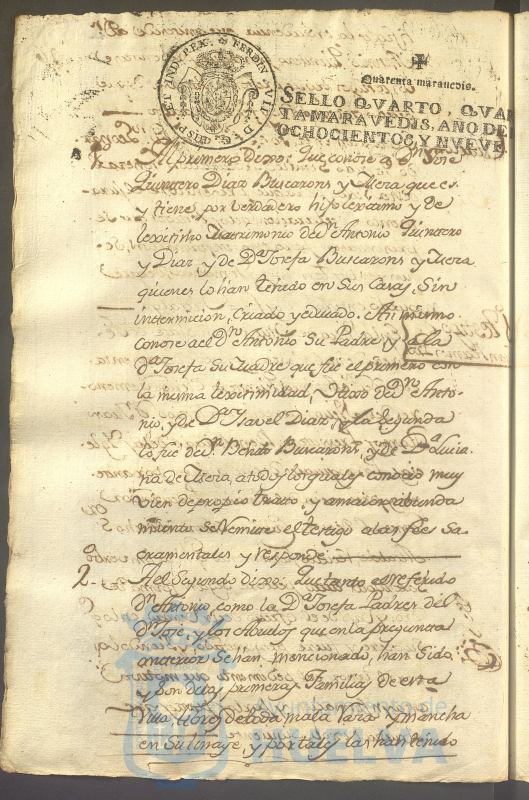 Quarenta maravedis.
SELLO QVARTO, QVAR
TA MARAVEDIS, AÑO DE
OCHOCIENTOS Y NVEVE.
FERDIN VII D. G. HISP. ET IND. REX
Al primero dixo: Que conoce a Dn. José
Quintero Diaz Buscarons y Usera que es
y tiene por verdadero hijo lexitimo y de
lexitimo Matrimonio de Dn. Antonio Quintero
y Diaz, y de Da. Josefa Buscarons, y Usera
quienes lo han tenido en sus Casas, Sin
intermicion, criado y educado. Asi mismo
conoce al Dn. Antonio su Padre y a la
Da. Josefa su Madre que fue el primero con
la misma lexitimidad, de Dn. Anto-
nio, y de Da. Isavel Diaz, y la Segunda
lo fue de Dn. Benito Buscarons, y de Da. Lucia-
na de Usera, a todos los quales conocio muy
bien de propio trato, y a maior abunda
miento se remite el testigo a las fees Sa-
cramentales y responde
2 - Al Segundo dixo: Que tanto el referido
Dn. Antonio, como la Da. Josefa Padres del
Dn. José, y los Abuelos que en la pregunta
anterior se han mencionado, han sido
y son de las primeras Familias de esta
Villa libres de toda mala raza y mancha
en su linaje, y por tales las han tenido
Ayuntamiento de
HUELVA